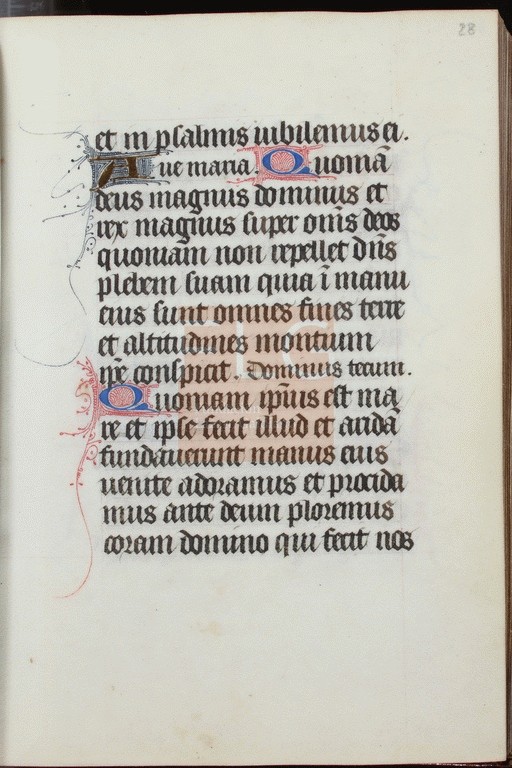 28
et in psalmis iubilemus ei.
Aue maria. Quoniā
deus magnus dominus et
rex magnus super om̄s deos
quoniam non repellet dn̄s
plebem suam quia ī manu
eius sunt omnes fines terre
et altitudines montium
ip̄e conspicit. Dominus tecum.
Quoniam ip̄ius est ma
re et ip̄se fecit illud et aridā
fundauerunt manus eius
uenite adoramus et procida
mus ante deum ploremus
coram domino qui fecit nos